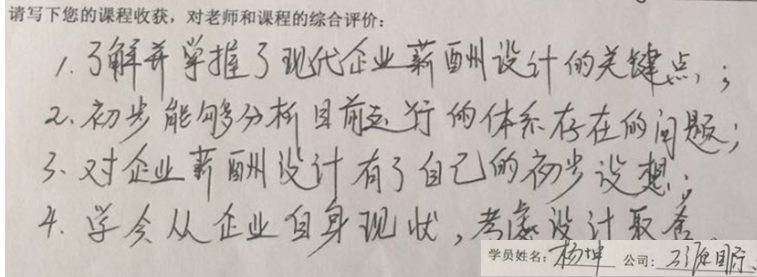 请写下您的课程收获，对老师和课程的综合评价：
1. 了解并掌握了现代企业薪酬设计的关键点；
2. 初步能够分析目前运行的体系存在的问题；
3. 对企业薪酬设计有了自己的初步设想；
4. 学会从企业自身现状，考虑设计取舍
学员姓名：杨坤 公司：